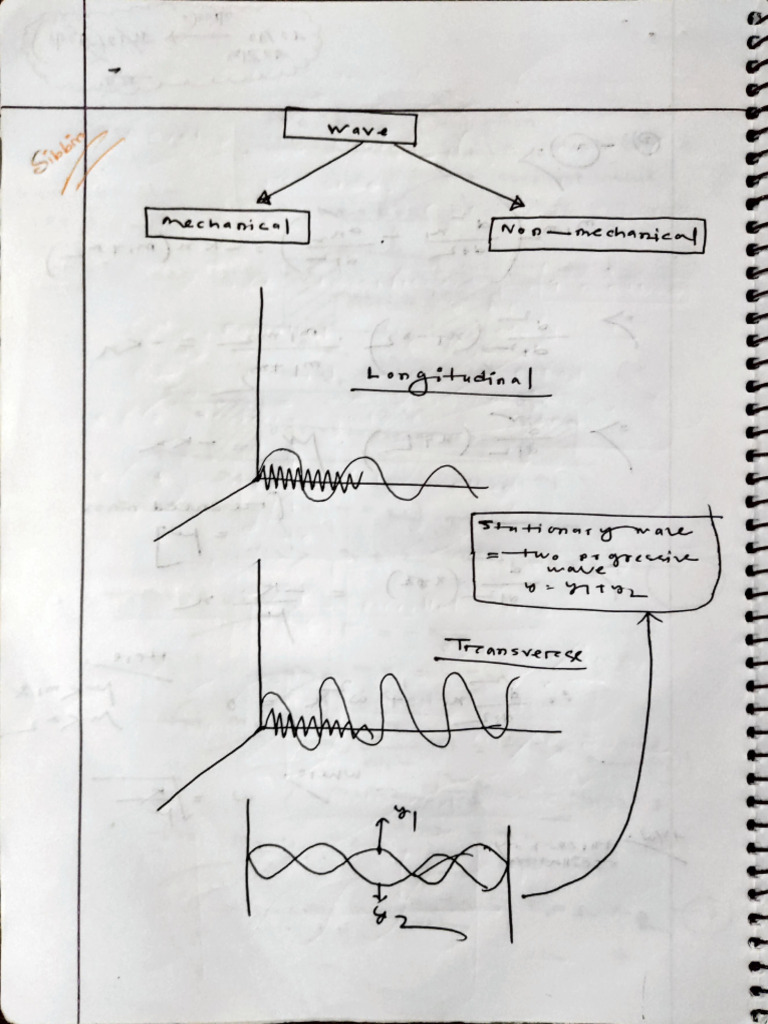 Sibbin
Wave
Mechanical
Non-mechanical
Longitudinal
Stationary wave
= two progressive
wave
y = y1+y2
Transverse
y1
y2